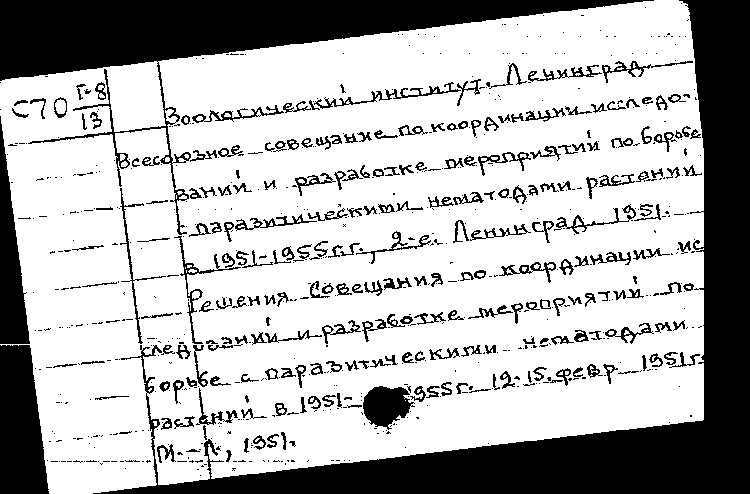 С70 Г-8/13
Зоологический институт. Ленинград.
Всесоюзное совещание по координации исследо-
ваний и разработке мероприятий по борьбе
с паразитическими нематодами растений
в 1951-1955 г.г., 2-е. Ленинград. 1951.
Решения Совещания по координации ис
следований и разработке мероприятий по
борьбе с паразитическими нематодами
растений в 1951- 955г. 12-15. февр 1951г.
М.-Л., 1951.